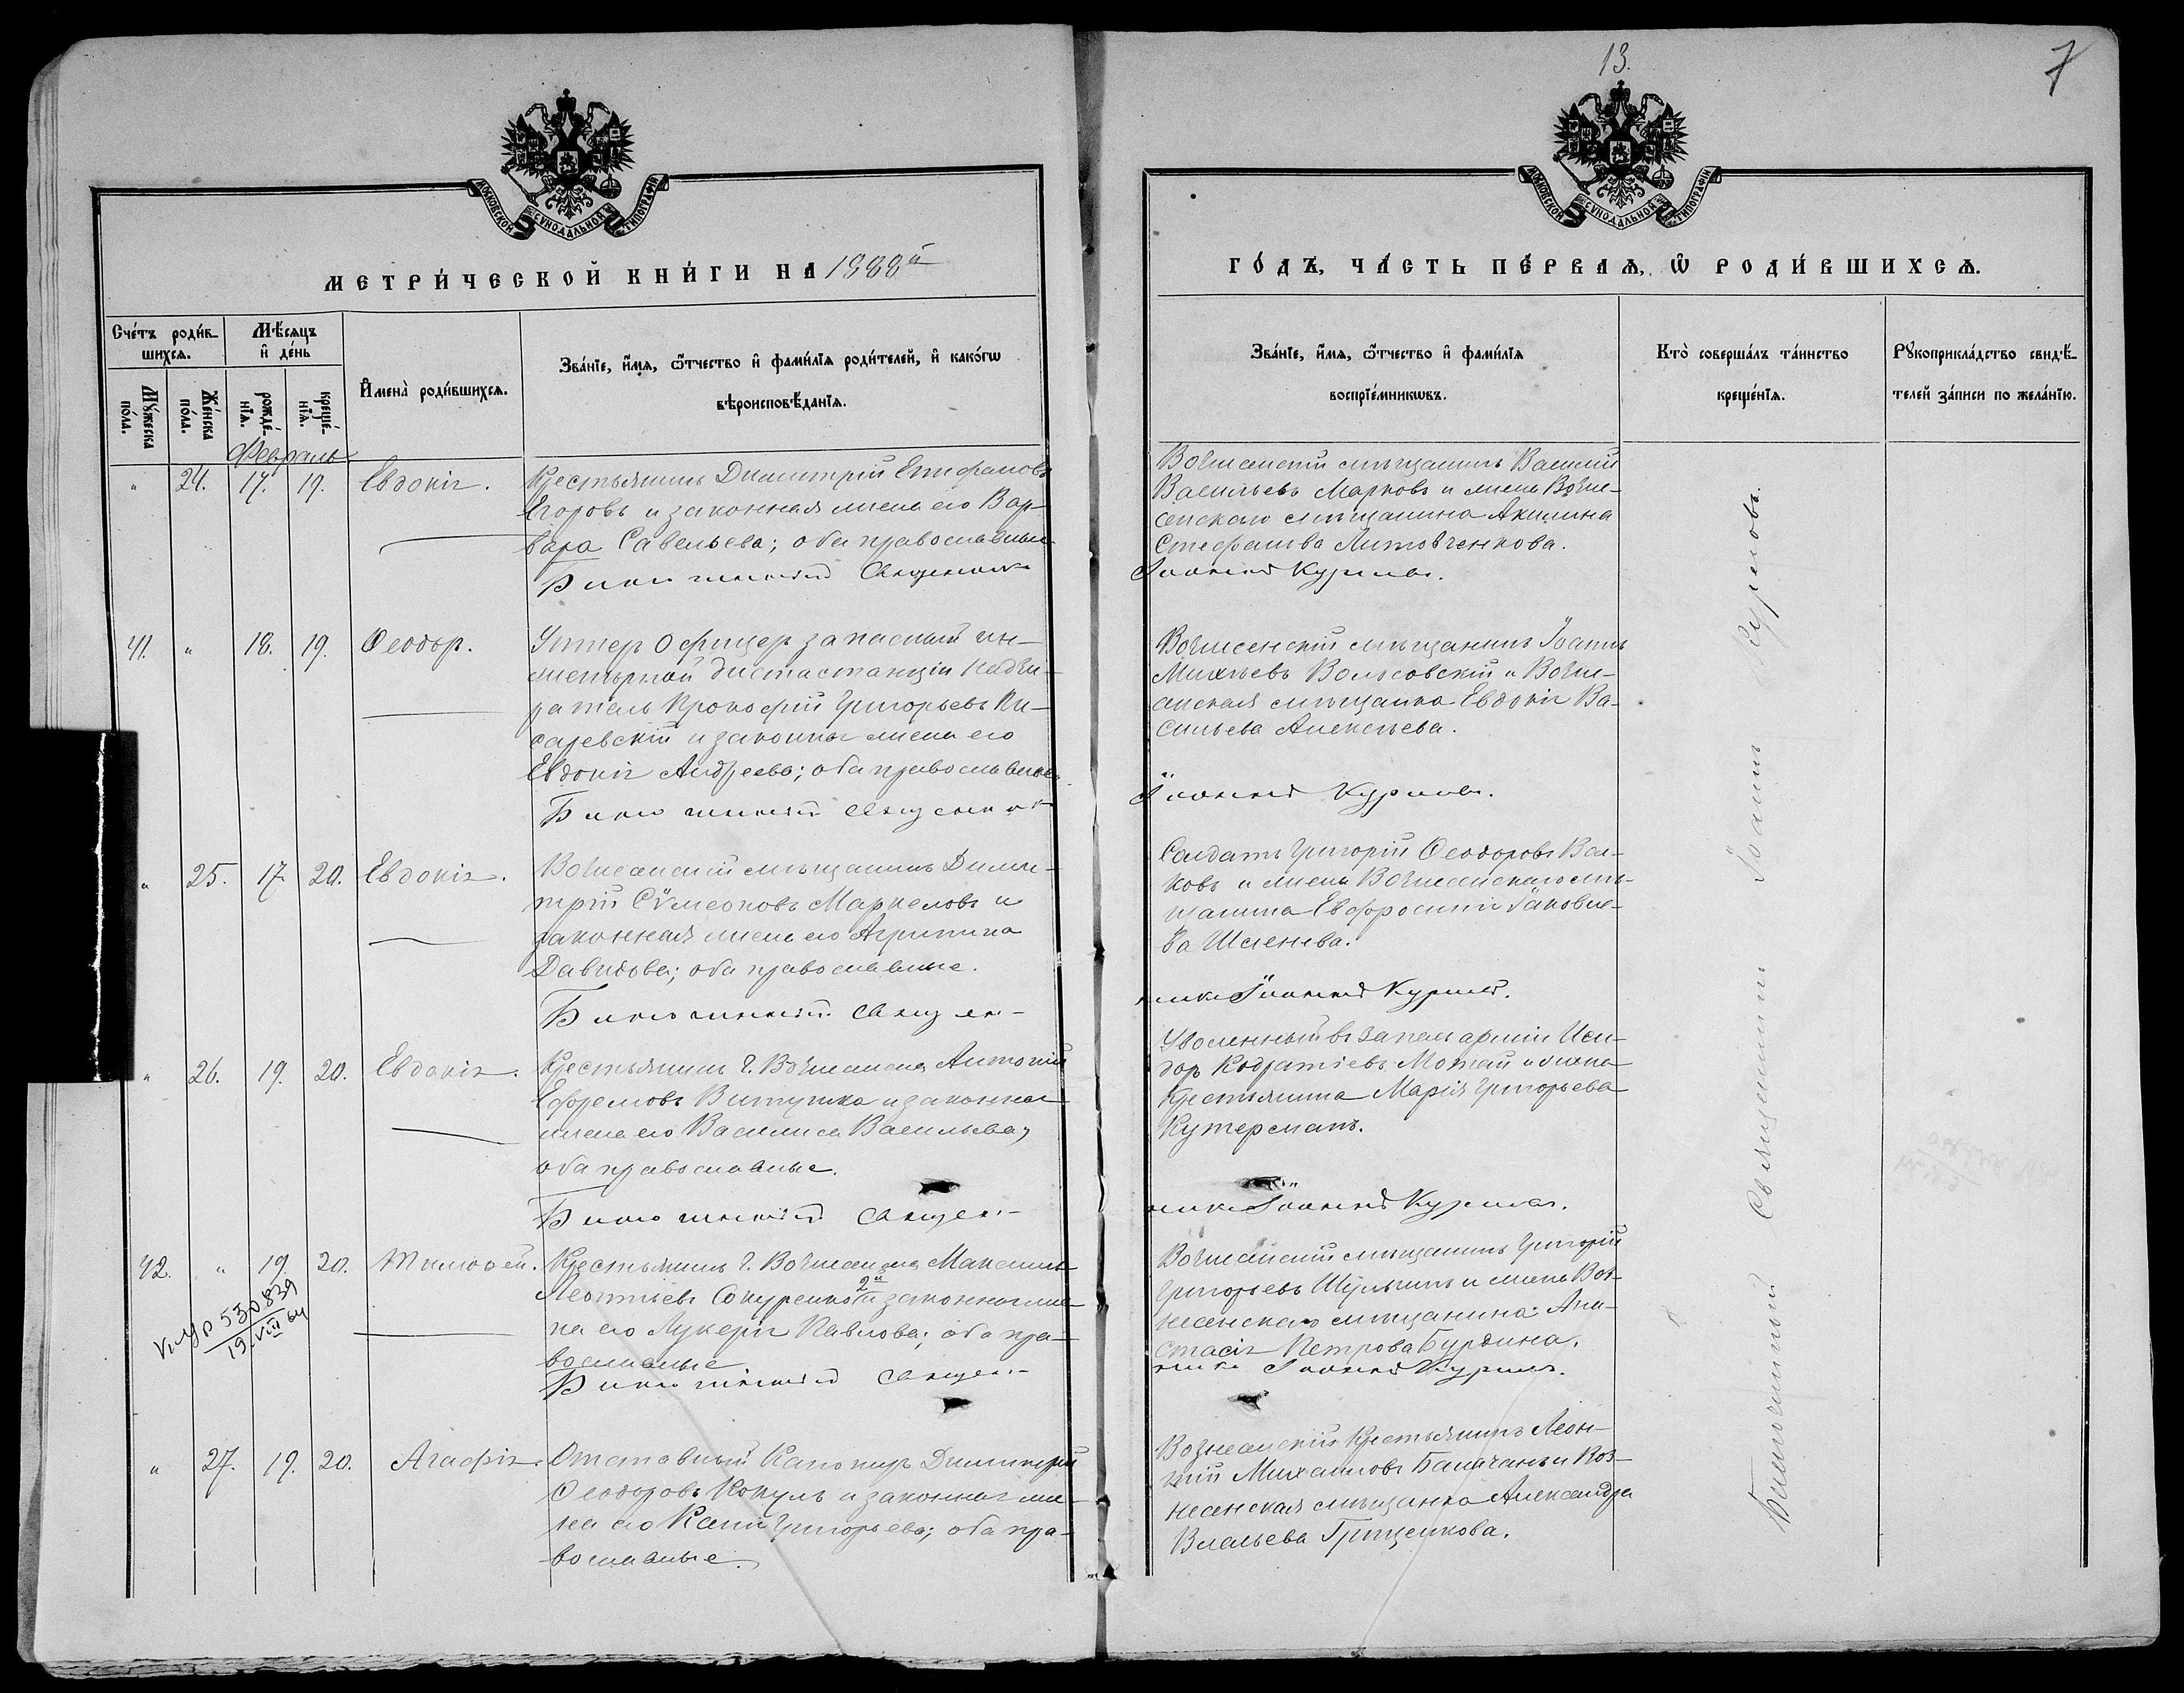 13.
7
МОСКОВСКОЙ СѴНОДАЛЬНОЙ ТИПОГРАФІИ
МОСКОВСКОЙ СѴНОДАЛЬНОЙ ТИПОГРАФІИ
МЕТРИ́ЧЕСКОЙ КНИ́ГИ НА 1888й
ГО́ДЪ, ЧА́СТЬ ПЕ́РВАѦ, Ѡ҆ РОДИ́ВШИХСѦ.
Сче́тъ роди́в-
шихсѧ.
Мѣ́сѧцъ
и҆ де́нь
Мꙋ́жеска
по́ла.
Же́нска
по́ла.
рожде́-
нїѧ.
креще́-
нїѧ.
И҆мена̀ роди́вшихсѧ.
Зва́нїе, и҆́мѧ, ѻ҆́тчество и҆ фамилїѧ роди́телей, и҆ како́гѡ
вѣроисповѣ́данїѧ.
Зва́нїе, и҆́мѧ, ѻ҆́тчество и҆ фамилїѧ
воспрїе́мникѡвъ.
Кто̀ соверша́лъ та́инство
креще́нїѧ.
Рꙋкоприкла́дство свидѣ́-
телей за́писи по жела́нїю.
Февраль
" 24. 17. 19. Евдокія.
Крестьянинъ Димитрій Епифановъ
Егоровъ и законная жена его Вар-
вара Савельева; оба православные
Священникъ
Вознесенскій мѣщанинъ Василій
Васильевъ Марковъ и жена Возне-
сенскаго мѣщанина Акилина
Стефанова Литовченкова.
Іоаннъ Куриловъ.
41. " 18. 19. Ѳеодоръ.
Унтеръ Офицеръ запасный ин-
женерной дистанціи Надзи-
ратель Прокофій Григорьевъ Пи-
саревскій и законная жена его
Евдокія Андреева; оба православные
Священникъ
Вознесенскій мѣщанинъ Іоаннъ
Михѣевъ Вольсовскій и Возне-
сенская мѣщанка Евдокія Ва-
сильева Алексѣева.
Іоаннъ Куриловъ.
" 25. 17. 20. Евдокія.
Вознесенскій мѣщанинъ Дими-
трій Сѵмеоновъ Маркеловъ и
законная жена его Агрипина
Давидова; оба православные.
Священ-
Солдатъ Григорій Ѳеодоровъ Вол-
ковъ и жена Вознесенскаго мѣ-
щанина Евфросинія Іаковле-
ва
никъ Іоаннъ Куриловъ.
" 26. 19. 20. Евдокія.
Крестьянинъ г. Вознесенска Антоній
Ефремовъ Витушко и законная
жена его Василиса Васильева,
оба православные.
Священ-
Уволенный въ запасъ арміи Иси-
доръ Кодратіевъ Мотай и жена
Крестьянина Марія Григорьева
Кутерманъ.
никъ Іоаннъ Куриловъ.
42. " 19. 20. Тимоѳей.
Крестьянинъ г. Вознесенска Максимъ
Леонтіевъ Сокуренко 2й и законная же-
на его Лукерія Павлова; оба пра-
вославные
Священ-
530839
19.VIII 64
Вознесенскій мѣщанинъ Григорій
Григорьевъ Шульгинъ и жена Воз-
несенскаго мѣщанина Ана-
стасія Петрова Бурдина.
никъ Іоаннъ Куриловъ.
" 27. 19. 20. Агафія.
Отставный Канониръ Димитрій
Ѳеодоровъ Кокулъ и законная же-
на его Ксенія Григорьева; оба пра-
вославные.
Вознесенскій Крестьянинъ Леон-
тій Михаиловъ Балачанъ и Воз-
несенская мѣщанка Александра
Власьева Грищенкова.
Священникъ Іоаннъ Куриловъ.